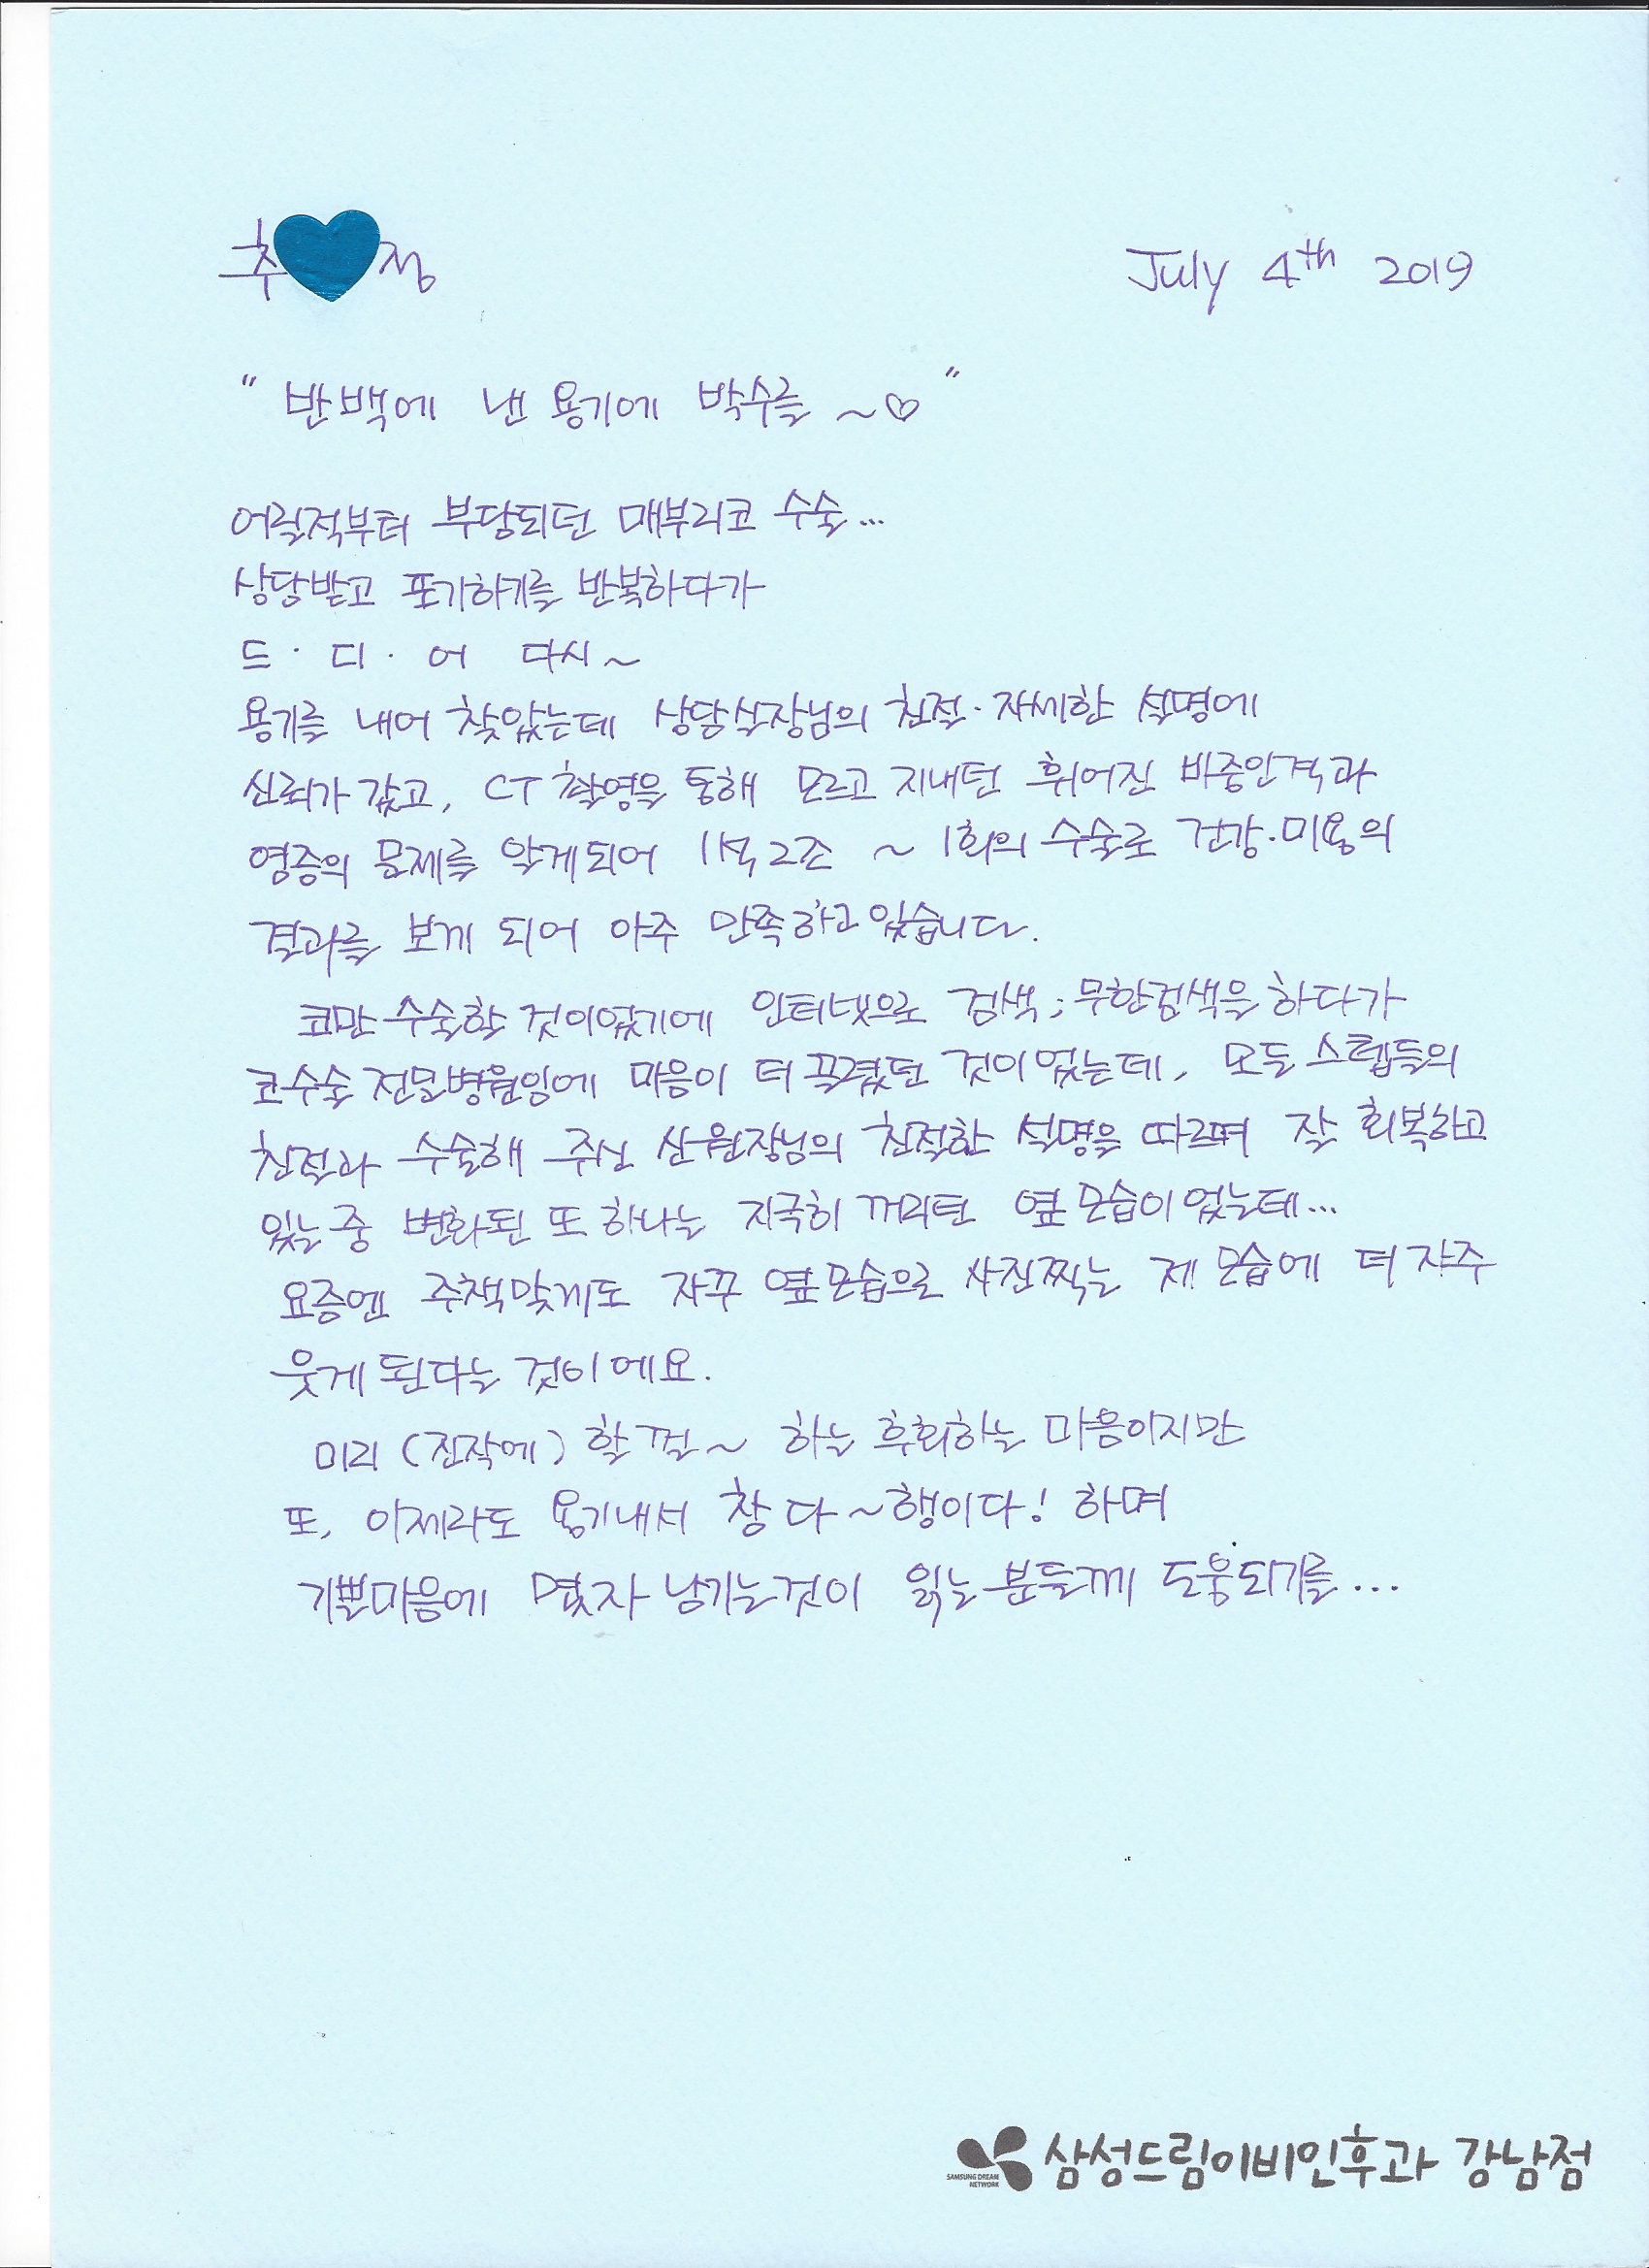 추 정 July 4th 2019
" 반백에 낸 용기에 박수를 ~♡ "
어릴적부터 부담되던 매부리코 수술...
상담받고 포기하기를 반복하다가
드 · 디 · 어 다시~
용기를 내어 찾았는데 상담실장님의 친절·자세한 설명에
신뢰가 갔고, CT 촬영을 통해 모르고 지내던 휘어진 비중안격과
염증의 문제를 알게되어 1석2조 ~ 1회의 수술로 건강·미용의
결과를 보게 되어 아주 만족하고 있습니다.
코만 수술할 것이었기에 인터넷으로 검색; 무한검색을 하다가
코수술 전문병원임에 마음이 더 끌렸던 것이었는데, 모든 스텝들의
친절과 수술해 주신 신원장님의 친절한 설명을 따르며 잘 회복하고
있는 중 변화된 또 하나는 지극히 꺼리던 옆모습이었는데...
요즘엔 주책맞게도 자꾸 옆모습으로 사진찍는 제 모습에 더 자주
웃게 된다는 것이에요.
미리 (진작에) 할껄~ 하는 후회하는 마음이지만
또, 이제라도 용기내서 참 다~행이다! 하며
기쁜마음에 몇자 남기는것이 읽는 분들께 도움되기를...
SAMSUNG DREAM
NETWORK
삼성드림이비인후과 강남점